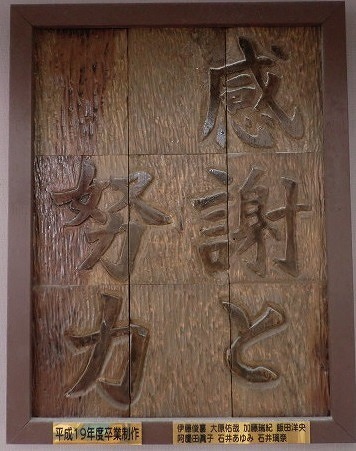 感謝と
努力
平成19年度卒業制作
伊藤優里 大原佑哉 加藤瑞紀 飯田洋央
阿隅田真子 石井あゆみ 石井璃奈